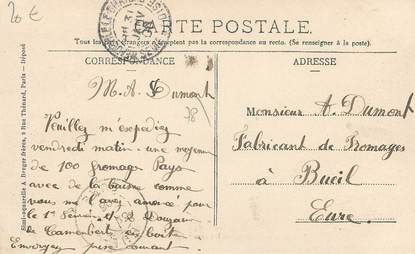 20 €
CARTE POSTALE
Tous les pays étrangers n'acceptent pas la correspondance au recto. (Se renseigner à la poste)
CORRESPONDANCE
ADRESSE
M. A. Dumont
78
Veuillez m'expédiez
vendredi matin une moyenne
de 100 fromages Pays
avec de la
comme
vous me l'avez annoncé pour
le 1er Février et 2 Douzaines
de Camembert en boîte
Envoyez prix courant
Monsieur A. Dumont
Fabricant de Fromages
à Bueil
Eure.
Simili-aquarelle A. Breger frères, 9 Rue Thénard, Paris - Déposé